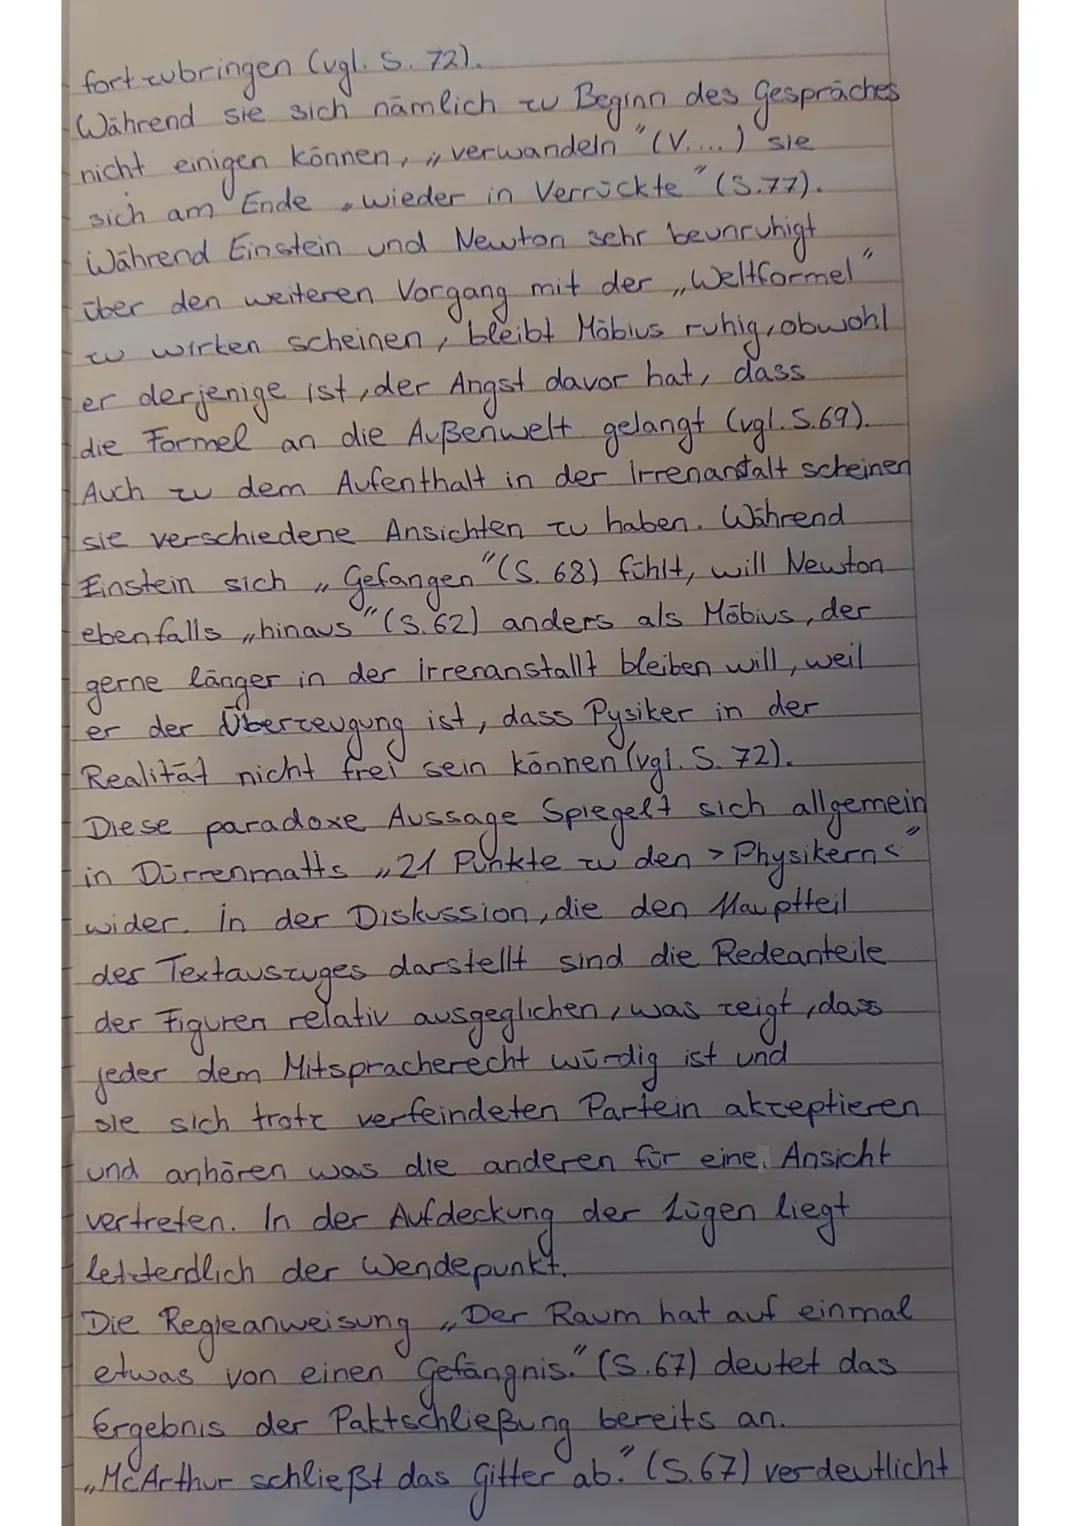 fortzubringen (vgl. S. 72).
Während sie sich nämlich zu Beginn des Gespräches
nicht einigen können, „verwandeln" (V. ...) sie
sich am Ende „wieder in Verrückte" (S.77).
Während Einstein und Newton sehr beunruhigt
über den weiteren Vorgang mit der „Weltformel"
zu wirken scheinen, bleibt Möbius ruhig, obwohl
er derjenige ist, der Angst davor hat, dass
die Formel an die Außenwelt gelangt (vgl. S.69).
Auch zu dem Aufenthalt in der Irrenanstalt scheinen
sie verschiedene Ansichten zu haben. Während
Einstein sich „Gefangen" (S. 68) fühlt, will Newton
ebenfalls „hinaus" (S.62) anders als Möbius, der
gerne länger in der Irrenanstallt bleiben will, weil
er der Überzeugung ist, dass Pysiker in der
Realität nicht frei sein können (vgl. S. 72).
Diese paradoxe Aussage Spiegelt sich allgemein
in Dürrenmatts „21 Punkte zu den >Physikern<"
wider. In der Diskussion, die den Hauptteil
des Textauszuges darstellt sind die Redeanteile
der Figuren relativ ausgeglichen, was zeigt, dass
jeder dem Mitspracherecht würdig ist und
sie sich trotz verfeindeten Partein akzeptieren
und anhören was die anderen für eine Ansicht
vertreten. In der Aufdeckung der Lügen liegt
letzterdlich der Wendepunkt.
Die Regieanweisung „Der Raum hat auf einmal
etwas von einen Gefängnis." (S.67) deutet das
Ergebnis der Paktschließung bereits an.
„McArthur schließt das Gitter ab." (S.67) verdeutlicht